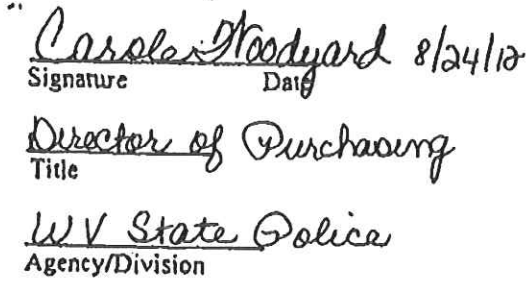 Carole Woodyard 8/24/12
Signature Date
Director of Purchasing
Title
WV State Police
Agency/Division